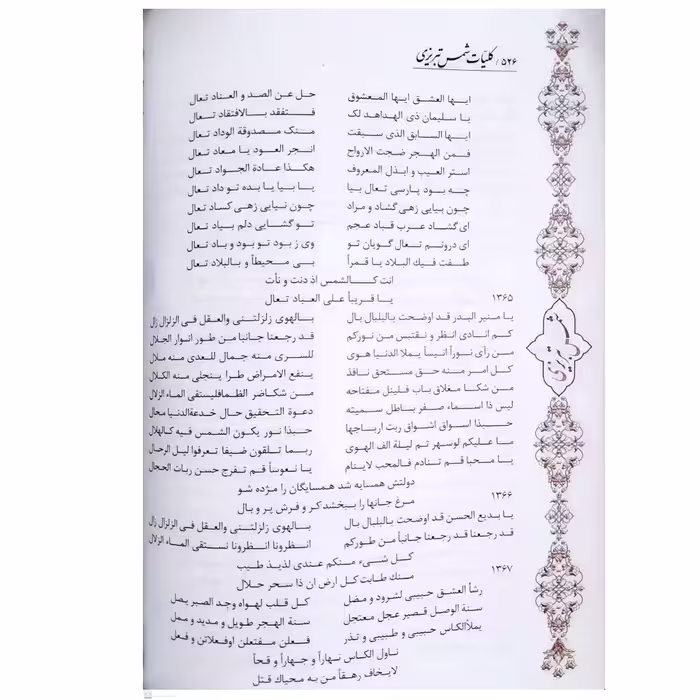 ۵۲۶ / کلیّات شمس تبریزی
ایها العشق ایها المعشوق حل عن الصد و العناد تعال
یا سلیمان ذی الهداهد لک فتفقد بالافتقاد تعال
ایها السابق الذی سبقت منک مصدوقة الوداد تعال
فمن الهجر ضجت الارواح انجر العود یا معاد تعال
استر العیب و ابذل المعروف هکذا عادة الجواد تعال
چه بود پارسی تعال بیا یا بیا یا بده تو داد تعال
چون بیایی زهی گشاد و مراد چون نیایی زهی کساد تعال
ای گشاد عرب قباد عجم تو گشایی دلم بیاد تعال
ای درونم تعال گویان تو وی ز بود تو بود و باد تعال
طفت فیک البلاد یا قمراً بی محیطاً و بالبلاد تعال
انت کالشمس اذ دنت و نأت
یا قریباً علی العباد تعال
۱۳۶۵
یا منیر البدر قد اوضحت بالبلبال بال بالهوی زلزلتنی والعقل فی الزلزال زال
کم انادی انظر و نقتبس من نورکم قد رجعنا جانبا من طور انوار الجلال
من رآی نوراً انیساً یملا الدنیا هوی للسری منه جمال للعدی منه ملال
کل امر منه حق مستحق نافذ ینفع الامراض طرا ینجلی منه الکلال
من شکا مغلاق باب فلینل مفتاحه من شکاضر الظمافلیستقی الماء الزلال
لیس ذا اسماء صفر باطل سمیته دعوة التحقیق حال خدعةالدنیا محال
حبذا اسواق اشواق ربت ارباحها حبذا نور یکون الشمس فیه کالهلال
ما علیکم لوسهرتم لیلة الف الهوی ربما تلقون ضیفا تعرفوا لیل الرحال
یا محبا قم تنادم فالمحب لاینام یا نعوساً قم تفرج حسن ربات الحجال
دولتش همسایه شد همسایگان را مژده شو
مرغ جانها را ببخشد کر و فرش پر و بال
۱۳۶۶
یا بدیع الحسن قد اوضحت بالبلبال بال بالهوی زلزلتنی والعقل فی الزلزال زال
قد رجعنا قد رجعنا جانباً من طورکم انظرونا انظرونا نستقی الماء الزلال
کل شیء منکم عندی لذیذ طیب
۱۳۶۷
منک طابت کل ارض ان ذا سحر حلال
رشأ العشق حبیبی لشرود و مضل کل قلب لهواه وجد الصبر یصل
سنة الوصل قصیر عجل معتجل سنة الهجر طویل و مدید و ممل
یملأالکاس حبیبی و طبیبی و نذر فعلن مفتعلن اوفعلاتن و فعل
ناول الکاس نهاراً و جهاراً و قحاً
لایخاف رهقاً من به محیاک قتل